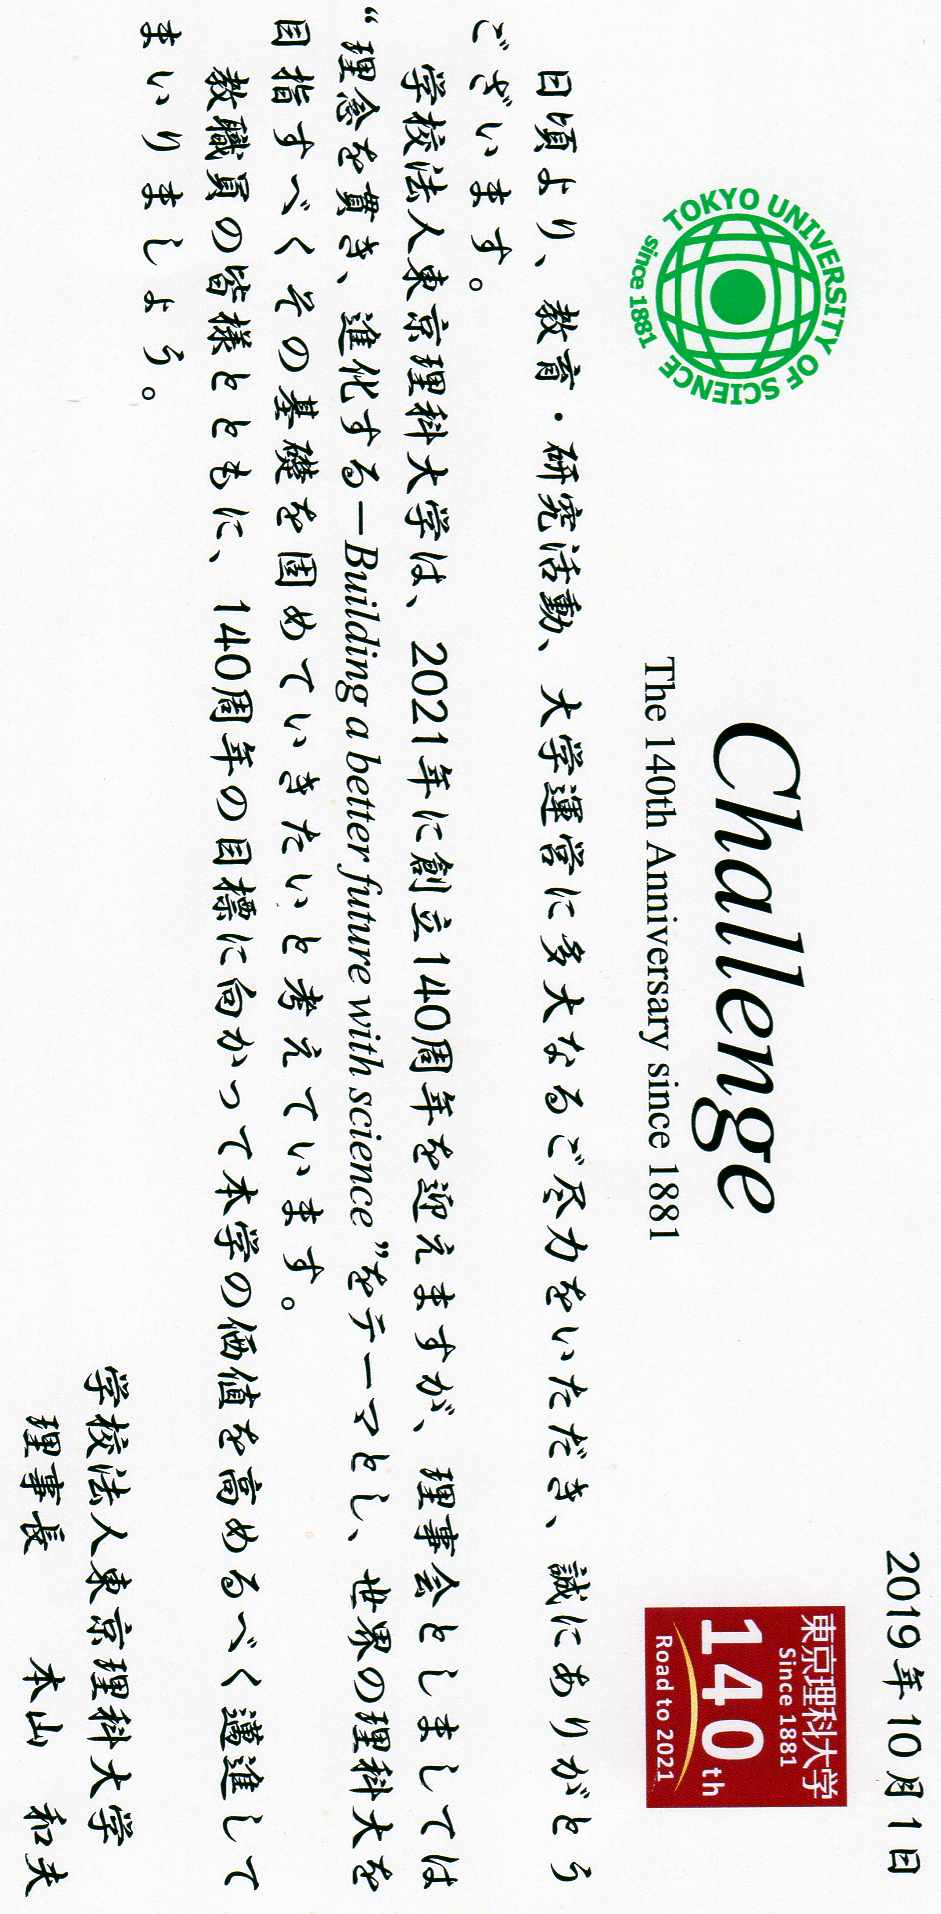 2019年10月1日
TOKYO UNIVERSITY OF SCIENCE
since 1881
Challenge
The 140th Anniversary since 1881
東京理科大学
Since 1881
140th
Road to 2021
日頃より、教育・研究活動、大学運営に多大なるご尽力をいただき、誠にありがとう
ございます。
学校法人東京理科大学は、2021年に創立140周年を迎えますが、理事会としましては
“理念を貫き、進化する—Building a better future with science”をテーマとし、世界の理科大を
目指すべくその基礎を固めていきたいと考えています。
教職員の皆様とともに、140周年の目標に向かって本学の価値を高めるべく邁進して
まいりましょう。
学校法人東京理科大学
理事長 本山 和夫